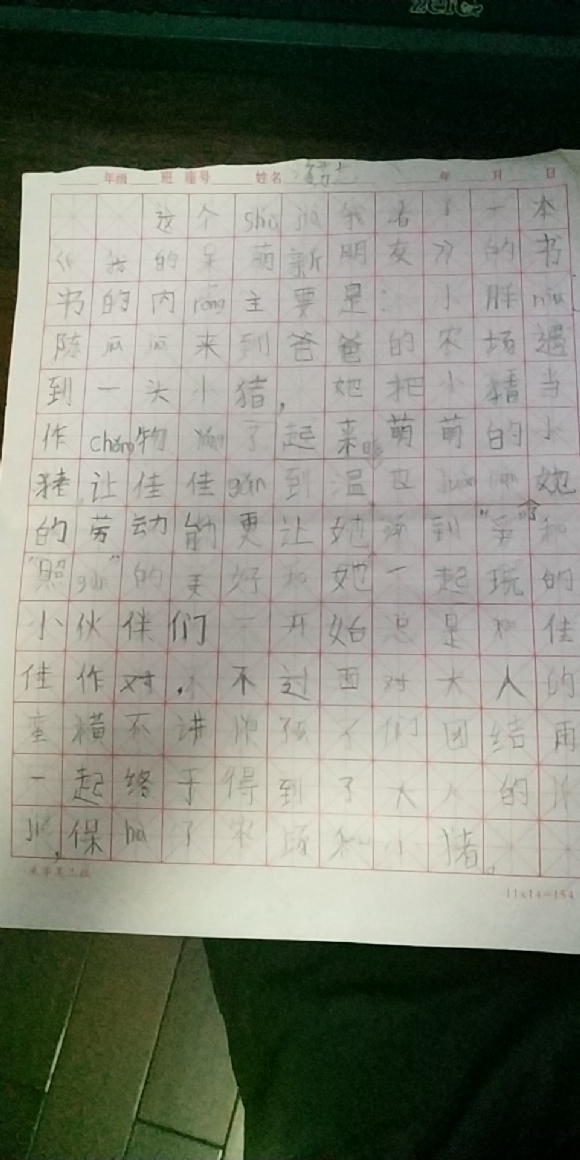 年级 班 座号 姓名 年 月 日
这个shǔ jià我看了一本
《我的呆萌新朋友》的书
书的内róng主要是：小胖niū
陈瓜瓜来到爸爸的农场遇
到一头小猪，她把小猪当
作chǒng物yǎng了起来萌萌的小
猪，让佳佳gǎn到温 她
的劳动能更让她 到"爱"和
"照gù"的美好和她一起玩的
小伙伴们一开始总是和佳
佳作对，不过面对大人的
蛮横不讲 孩子们团结再
一起终于得到了大人的
jiě，保hù了农场和小猪。
11×14=154